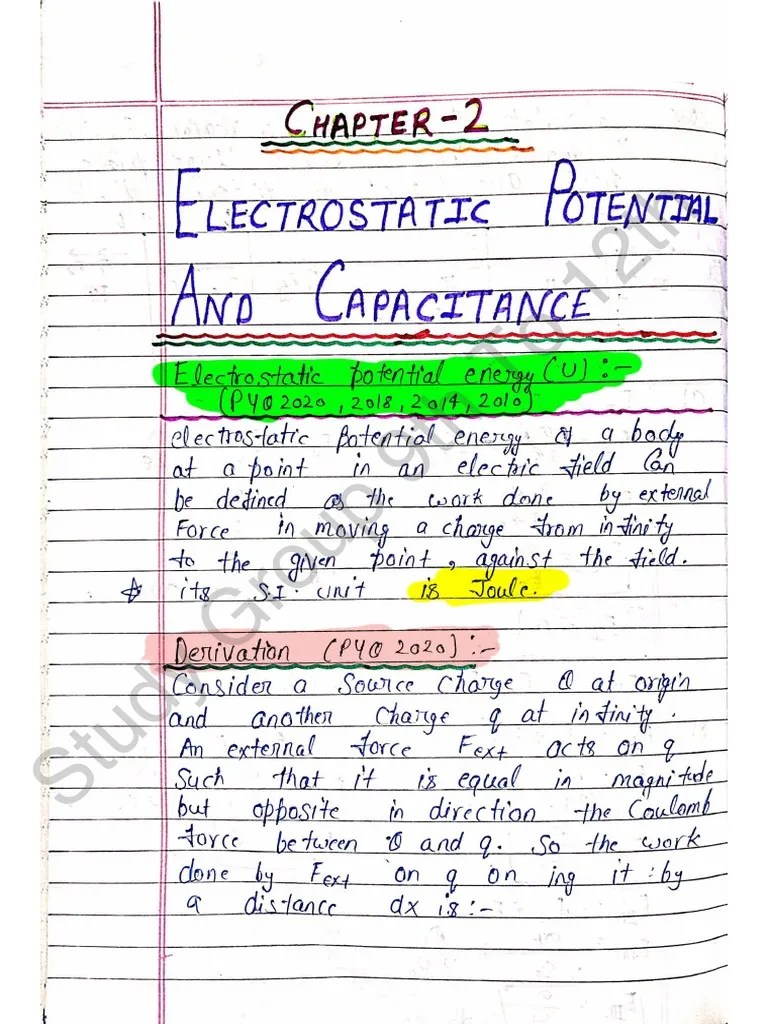 CHAPTER-2
ELECTROSTATIC POTENTIAL
AND CAPACITANCE
Electrostatic potential energy (U) :-
(PYQ 2020, 2018, 2014, 2010)
electrostatic potential energy of a body
at a point in an electric field Can
be defined as the work done by external
Force in moving a charge from infinity
to the given point, against the field.
☆ its S.I. unit is Joule.
Derivation (PYQ 2020) :-
Consider a Source Charge Q at origin
and another Charge q at infinity.
An external force Fext acts on q
Such that it is equal in magnitude
but opposite in direction the Coulomb
force between Q and q. So the work
done by Fext on q on ing it by
a distance dx is :-
Study Group 9th To 12th